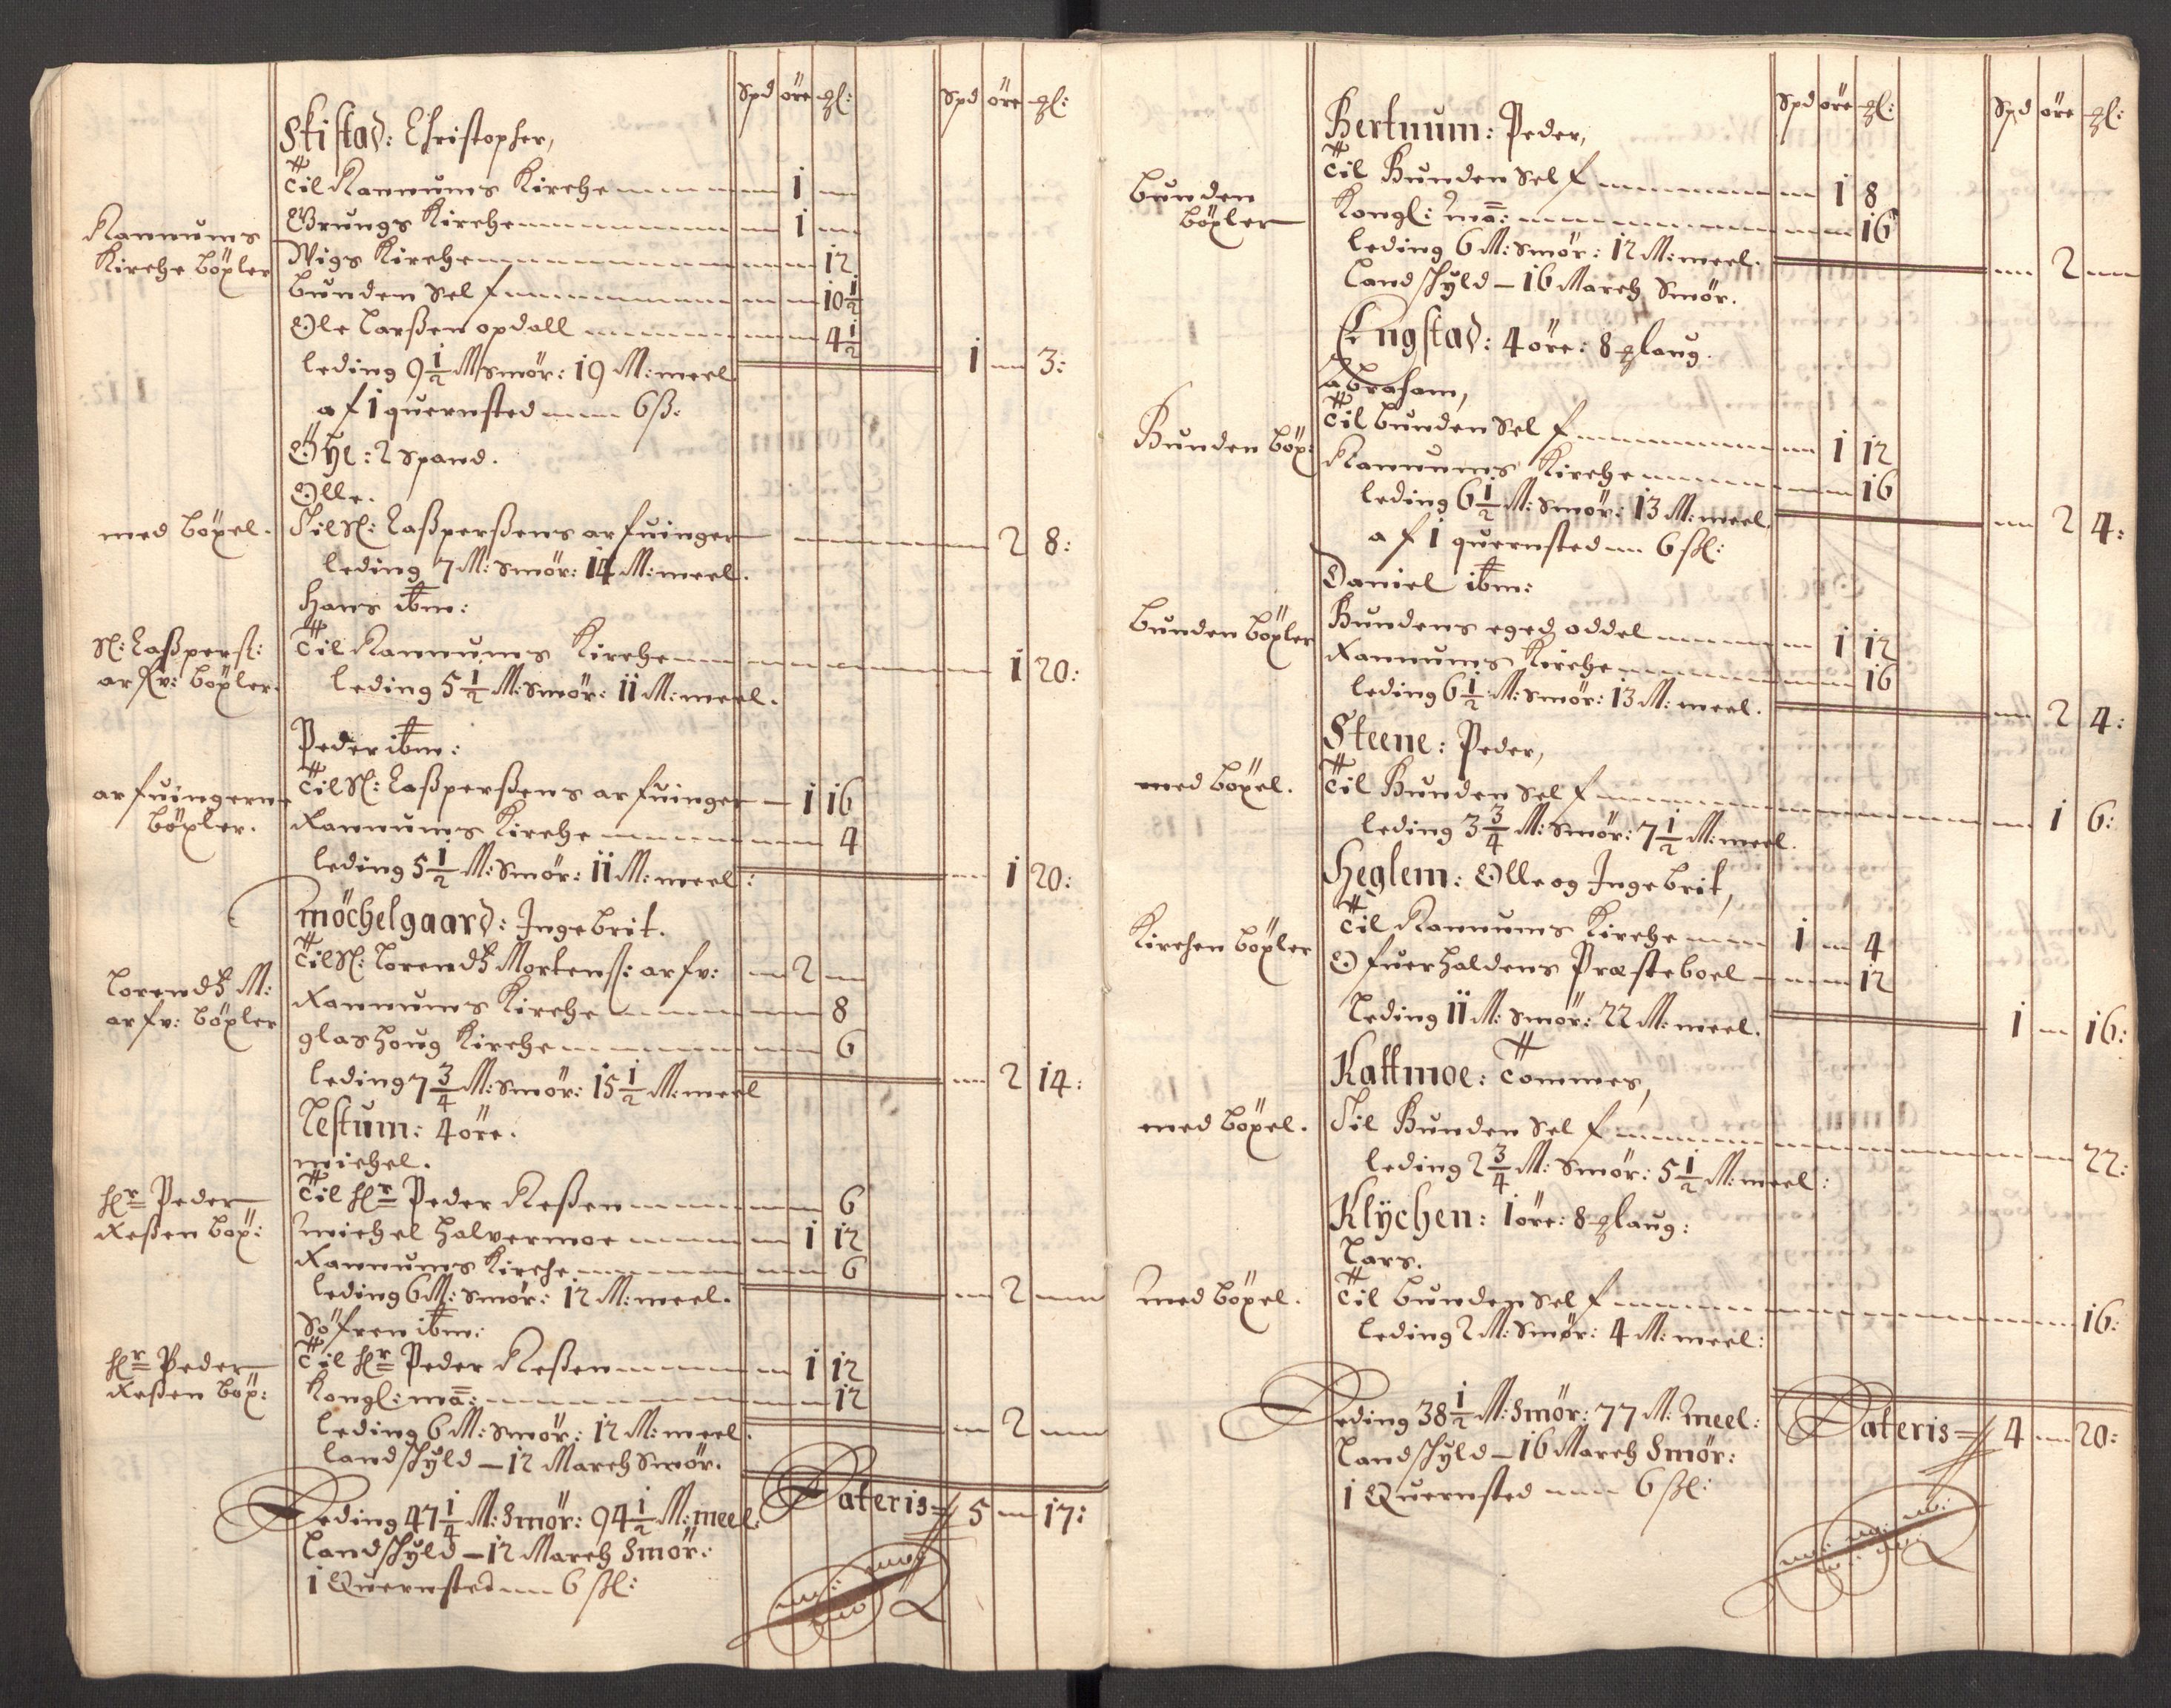 Spd öre gl: Spd öre gl:
Stistad: Christopher,
Til Rannums Kirche 1
Rannums Grungs Kirche 1
Kirche böxler Wigs Kirche 12
Bunden Self 10 1/2
Ole Larßen opdall 4 1/2
leding 9 1/2 M: smör: 19 M: meel. 1 3:
af 1 quernsted 6 ß:
Öÿe: 2 Spand.
Olle.
med böxel. Til Sl: Caßperßens arfuinger 2 8:
leding 7 M: smör: 14 M: meel.
Hans ibm:
Sl: Caßperß: Til Rannums Kirche 1 20:
arfv: böxler. leding 5 1/2 M: smör: 11 M: meel.
Peder ibm:
arfuingerne Til Sl: Caßperßens arfuinger 1 16
böxler. Rannums Kirche 4
leding 5 1/2 M: smör: 11 M: meel: 1 20:
Möchelgaard: Ingebrit.
Til Sl: Lorendtz Mortenß: arfv: 2
Lorendtz M: Rannums Kirche 8
arfv: böxler glashoug Kirche 6
leding 7 3/4 M: smör: 15 1/2 M: meel 2 14:
Lestum: 4 öre.
Michel.
Hr Peder Til Hr Peder Reßen 6
Reßen böx: Michel Halvermoe 1 12
Rannums Kirche 6
leding 6 M: smör: 12 M: meel. 2
Söfren ibm:
Hr Peder Til Hr Peder Reßen 1 12
Reßen böx: Kongl: ma: 12
leding 6 M: smör: 12 M: meel. 2
landschyld – 12 March smör.
Leding 47 1/4 M: Smör: 94 1/2 M: meel: Lateris 5 17:
Landschyld – 12 March Smör:
1 Quernsted 6 ßl:
Spd öre gl: Spd öre gl:
Bertnum: Peder,
Bunden Til Bunden Self 1 8
böxler Kongl: Ma: 16
leding 6 M: smör: 12 M: meel. 2
Landschyld – 16 March Smör.
Engstad: 4 öre: 8 glaug.
Abraham,
Bunden böx: Til bunden Self 1 12
Rannums Kirche 16
leding 6 1/2 M: smör: 13 M: meel. 2 4:
af 1 quernsted 6 ßl:
Daniel ibm:
Bunden böxler Bundens eged oddel 1 12
Rannums Kirche 16
leding 6 1/2 M: smör: 13 M: meel. 2 4:
Steene: Peder,
med böxel. Til Bunden Self 1 6:
leding 3 3/4 M: smör: 7 1/2 M: meel.
Heglem: Olle og Ingebrit,
Kirchen böxler Til Rannums Kirche 1 4
Ofuerhaldens Præsteboel 12
Leding 11 M: smör: 22 M: meel. 1 16:
Kattmoe: Tommes,
med böxel. Til Bunden Self 22:
leding 2 3/4 M: smör: 5 1/2 M: meel:
Klÿchen: 1 öre: 8 glaug:
Lars.
Med böxel. Til bunden Self 16:
leding 2 M: smör: 4 M: meel:
Leding 38 1/2 M: Smör: 77 M: Meel: Lateris 4 20:
Landschyld – 16 March Smör:
1 Quernsted 6 ßl: